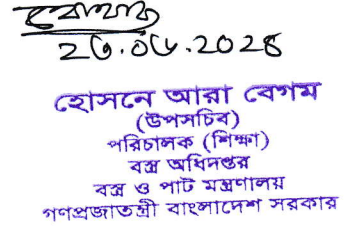 ২৩.০৬.২০২৪
হোসনে আরা বেগম
(উপসচিব)
পরিচালক (শিক্ষা)
বস্ত্র অধিদপ্তর
বস্ত্র ও পাট মন্ত্রণালয়
গণপ্রজাতন্ত্রী বাংলাদেশ সরকার